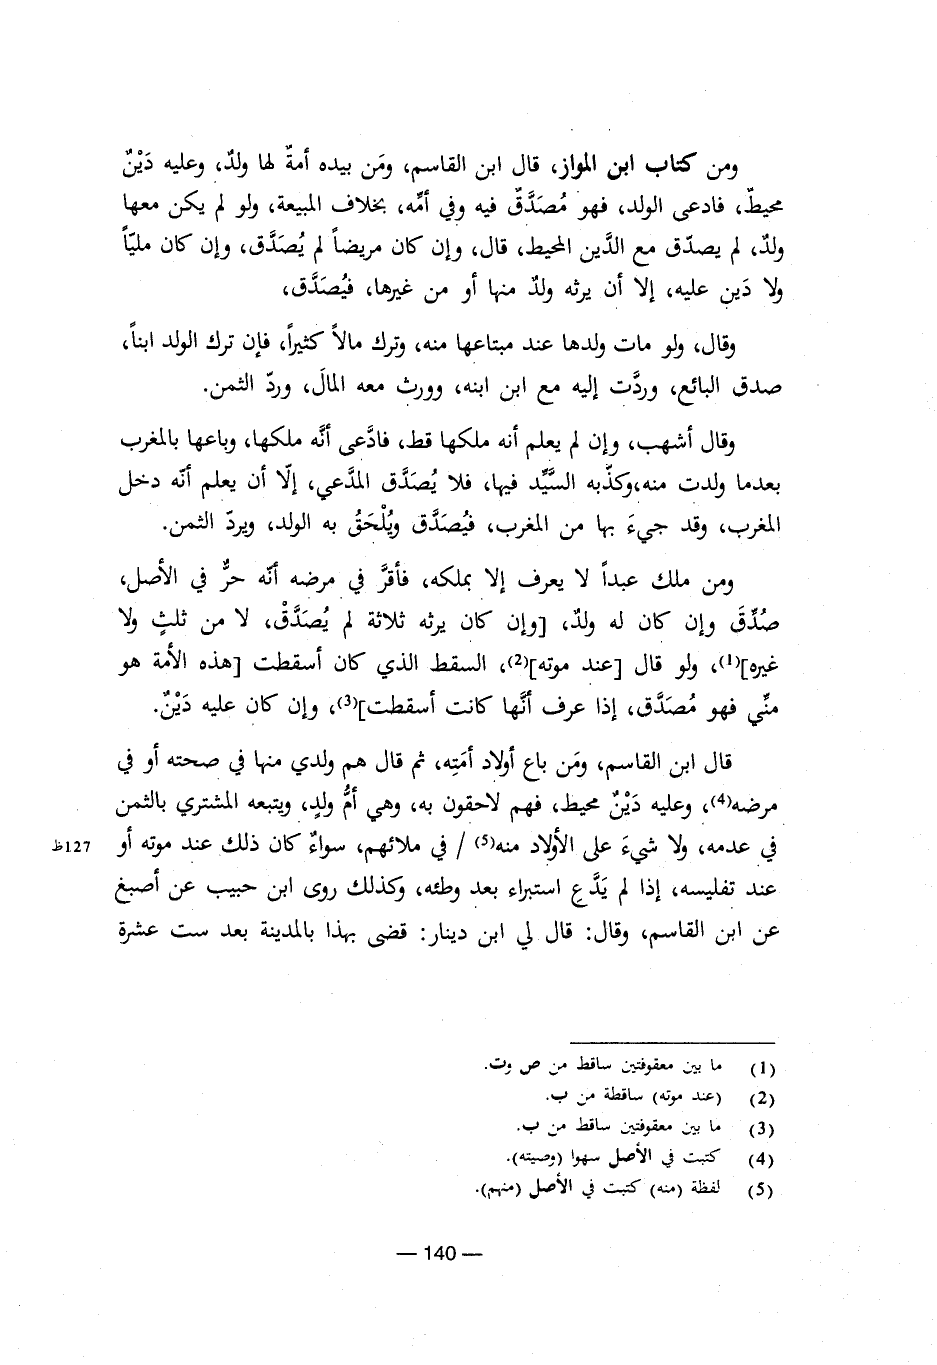 ومن كتاب ابن المواز، قال ابن القاسم، ومَن بيده أمةٌ لها ولدٌ، وعليه دَيْنٌ
محيطٌ، فادعى الولد، فهو مُصَدَّقٌ فيه وفي أمِّه، بخلاف المبيعة، ولو لم يكن معها
ولدٌ، لم يصدّق مع الدَّين المحيط، قال، وإن كان مريضاً لم يُصَدَّق، وإن كان مليّاً
ولا دَين عليه، إلا أن يرثه ولدٌ منها أو من غيرها، فيُصَدَّق،
وقال، ولو مات ولدها عند مبتاعها منه، وترك مالاً كثيراً، فإن ترك الولد ابناً،
صدق البائع، وردَّت إليه مع ابن ابنه، وورث معه المالَ، وردّ الثمن.
وقال أشهب، وإن لم يعلم أنه ملكها قط، فادَّعى أنَّه ملكها، وباعها بالمغرب
بعدما ولدت منه،وكذّبه السَّيِّد فيها، فلا يُصَدَّق المدَّعي، إلّا أن يعلم أنّه دخل
المغرب، وقد جيءَ بها من المغرب، فيُصَدَّق ويُلْحَقُ به الولد، ويردّ الثمن.
ومن ملك عبداً لا يعرف إلا بملكه، فأقرَّ في مرضه أنّه حرٌّ في الأصل،
صُدِّقَ وإن كان له ولدٌ، [وإن كان يرثه ثلاثة لم يُصَدَّقْ، لا من ثلثٍ ولا
غيره](1)، ولو قال [عند موته](2)، السقط الذي كان أسقطت [هذه الأمة هو
منّي فهو مُصَدَّق، إذا عرف أنَّها كانت أسقطت](3)، وإن كان عليه دَيْنٌ.
قال ابن القاسم، ومَن باع أولاد أمَتِه، ثم قال هم ولدي منها في صحته أو في
مرضه(4)، وعليه دَيْنٌ محيط، فهم لاحقون به، وهي أمُّ ولدٍ، ويتبعه المشتري بالثمن
في عدمه، ولا شيءَ على الأولاد منه(5) / في ملائهم، سواءٌ كان ذلك عند موته أو
127ظ
عند تفليسه، إذا لم يَدَّعِ استبراء بعد وطئه، وكذلك روى ابن حبيب عن أصبغ
عن ابن القاسم، وقال: قال لي ابن دينار: قضى بهذا بالمدينة بعد ست عشرة
(1) ما بين معقوفتين ساقط من ص وت.
(2) (عند موته) ساقطة من ب.
(3) ما بين معقوفتين ساقط من ب.
(4) كتبت في الأصل سهوا (وصيته).
(5) لفظة (منه) كتبت في الأصل (منهم).
— 140 —